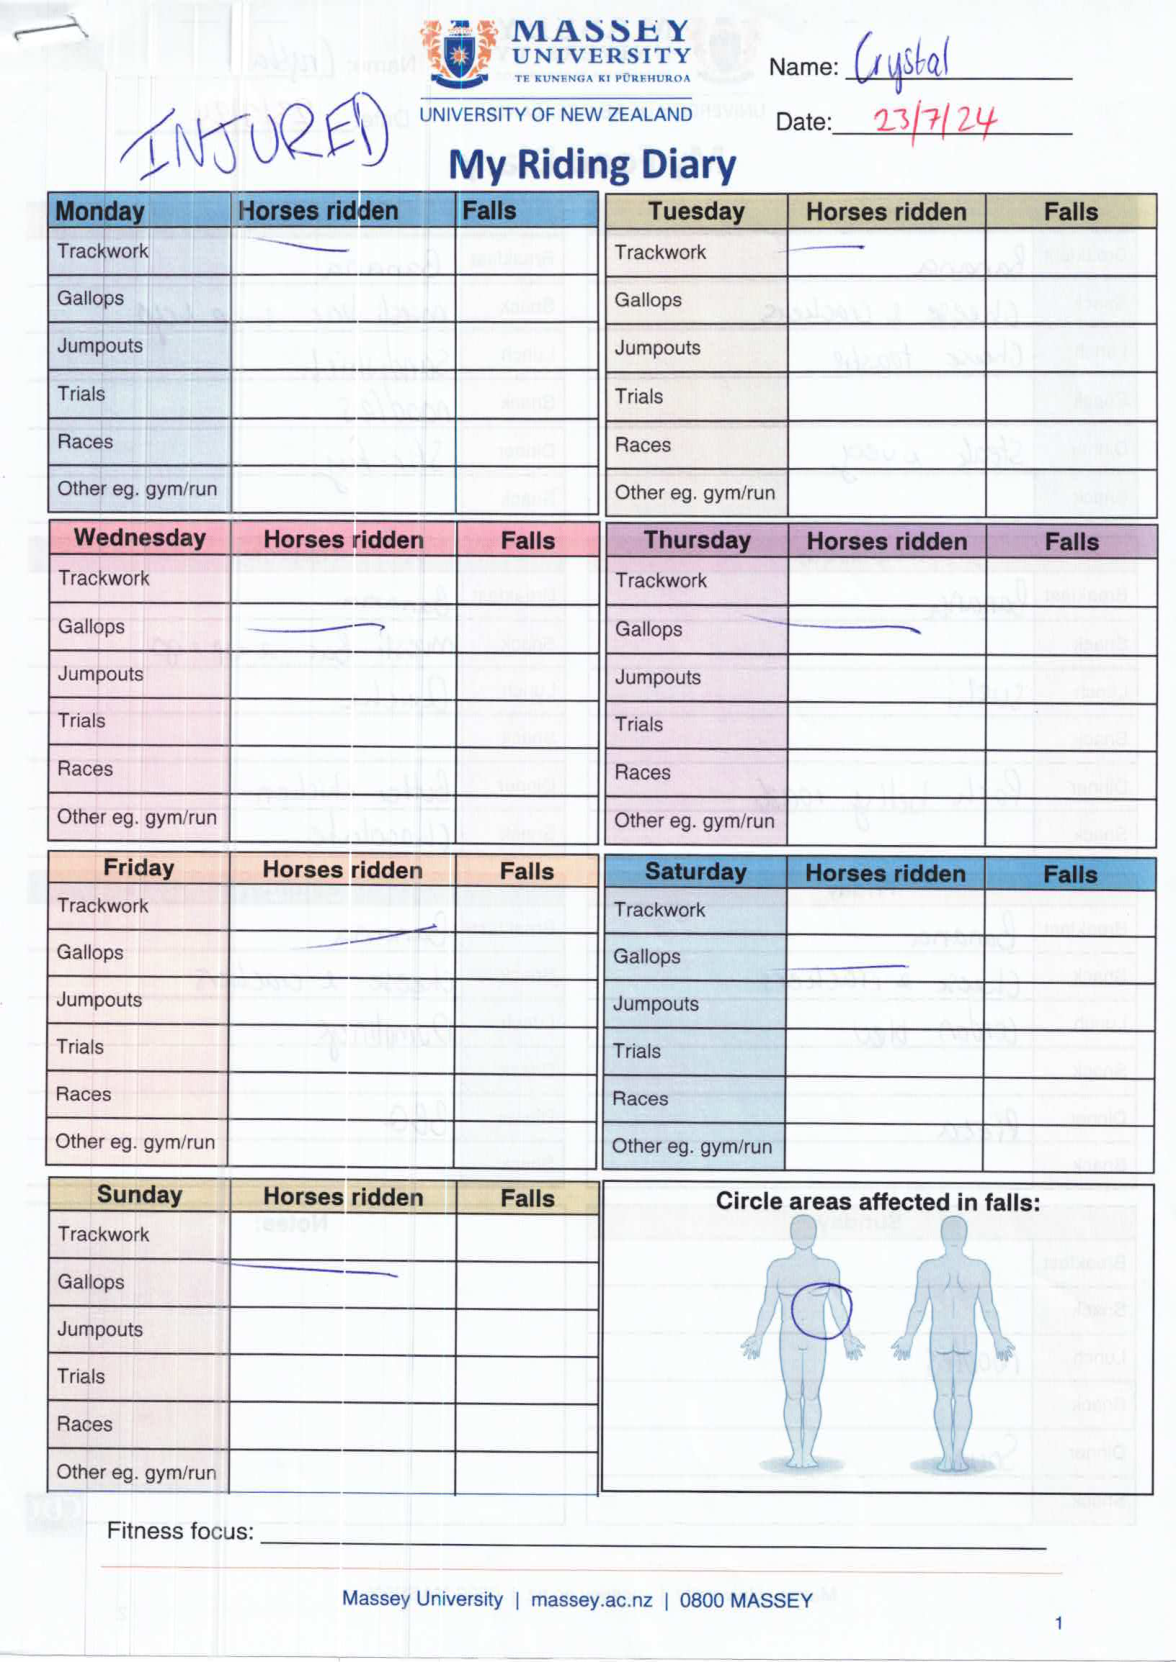 MASSEY
UNIVERSITY
TE KUNENGA KI PŪREHUROA
UNIVERSITY OF NEW ZEALAND
Name: Crystal
Date: 23/7/24
INJURED
My Riding Diary
Monday Horses ridden Falls
Trackwork
Gallops
Jumpouts
Trials
Races
Other eg. gym/run
Tuesday Horses ridden Falls
Trackwork
Gallops
Jumpouts
Trials
Races
Other eg. gym/run
Wednesday Horses ridden Falls
Trackwork
Gallops
Jumpouts
Trials
Races
Other eg. gym/run
Thursday Horses ridden Falls
Trackwork
Gallops
Jumpouts
Trials
Races
Other eg. gym/run
Friday Horses ridden Falls
Trackwork
Gallops
Jumpouts
Trials
Races
Other eg. gym/run
Saturday Horses ridden Falls
Trackwork
Gallops
Jumpouts
Trials
Races
Other eg. gym/run
Sunday Horses ridden Falls
Trackwork
Gallops
Jumpouts
Trials
Races
Other eg. gym/run
Circle areas affected in falls:
Fitness focus:
Massey University | massey.ac.nz | 0800 MASSEY
1